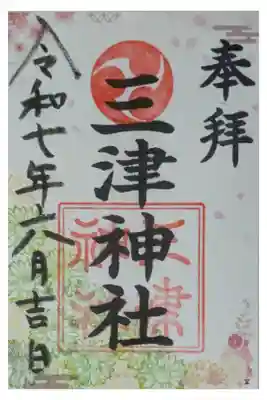 奉拝
三津神社
令和七年六月吉日